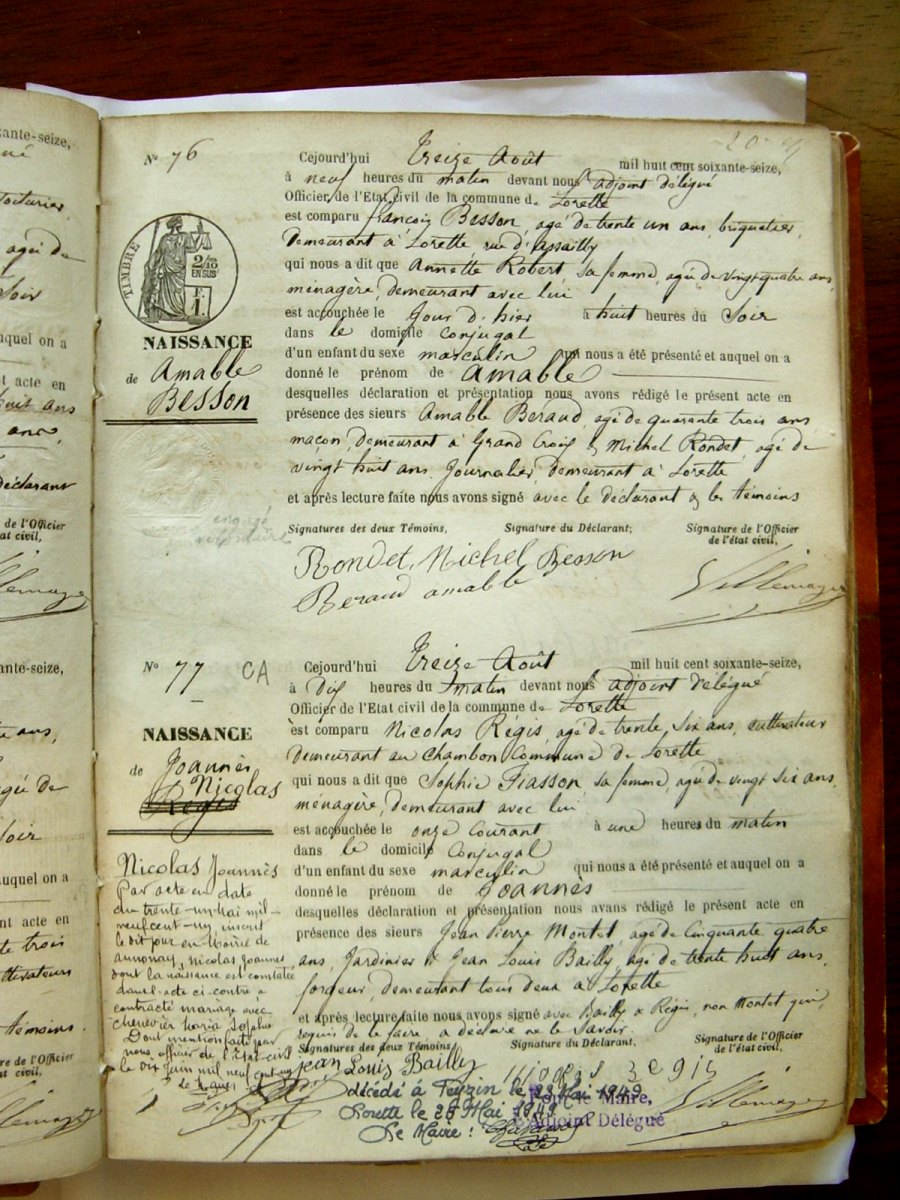 ante-seize,
né
voiturier,
agé de
Soir
auquel on a
t acte en
huit ans
ans,
déclarant
de l'Officier
at civil,
nante-seize,
agé de
Soir
auquel on a
nt acte en
te trois
ltivateurs
témoins.
re de l'Officier
état civil,
20
N° 76
TIMBRE
2/10
EN SUS
F.
1.
NAISSANCE
de Amable
Besson
Cejourd'hui Treize Août mil huit cent soixante-seize,
à neuf heures du matin devant nous adjoint délégué
Officier de l'Etat civil de la commune de Lorette
est comparu françois Besson, agé de trente un ans, briquetier,
demeurant à Lorette rue d'assailly
qui nous a dit que Annette Robert, sa femme, agée de vingt quatre ans,
ménagère, demeurant avec lui
est accouchée le Jour d'hier à huit heures du Soir
dans le domicile conjugal
d'un enfant du sexe masculin qui nous a été présenté et auquel on a
donné le prénom de Amable
desquelles déclaration et présentation nous avons rédigé le présent acte en
présence des sieurs Amable Beraud, agé de quarante trois ans
maçon, demeurant à Grand Croix & Michel Rondet, agé de
vingt huit ans Journalier, demeurant à Lorette
et après lecture faite nous avons signé avec le déclarant & les témoins
engagé
volontaire
Signatures des deux Témoins, Signature du Déclarant, Signature de l'Officier
de l'état civil,
Rondet, Michel Besson
Beraud amable Villemagne
N° 77 CA
NAISSANCE
de Joannès
Nicolas
Régis
Cejourd'hui Treize Août mil huit cent soixante-seize,
à Dix heures du matin devant nous adjoint délégué
Officier de l'Etat civil de la commune de Lorette
est comparu Nicolas Régis, agé de trente six ans, cultivateur
demeurant au Chambon Commune de Lorette
qui nous a dit que Sophie Fiasson, sa femme, agée de vingt six ans
ménagère, demeurant avec lui
est accouchée le onze Courant à une heures du matin
dans le domicile Conjugal
d'un enfant du sexe masculin qui nous a été présenté et auquel on a
donné le prénom de Joannès
desquelles déclaration et présentation nous avons rédigé le présent acte en
présence des sieurs Jean Pierre Montet, agé de Cinquante quatre
ans, Jardinier & Jean Louis Bailly, agé de trente huit ans,
forgeur, demeurant tous deux à Lorette
et après lecture faite nous avons signé avec Bailly & Régis, non Montet qui
requis de le faire a déclaré ne le Savoir.
Nicolas Joannès
Par acte en date
du trente-un mai mil-
neuf cent-un, inscrit
le dit jour en Mairie de
annonay, Nicolas Joannes
dont la naissance est constatée
dans l'acte ci-contre a
contracté mariage avec
Chenevier Maria Sophie
Dont mention faite par
nous, officier de l'état-civil
le dix Juin mil neuf cent un
Signatures des deux Témoins, Signature du Déclarant, Signature de l'Officier
de l'état civil,
jean Louis Bailly
Villemagne
décédé à Feyzin le 23 Mai 1949
Lorette le 28 Mai 1949
Le Maire :
Pour le Maire,
Adjoint Délégué